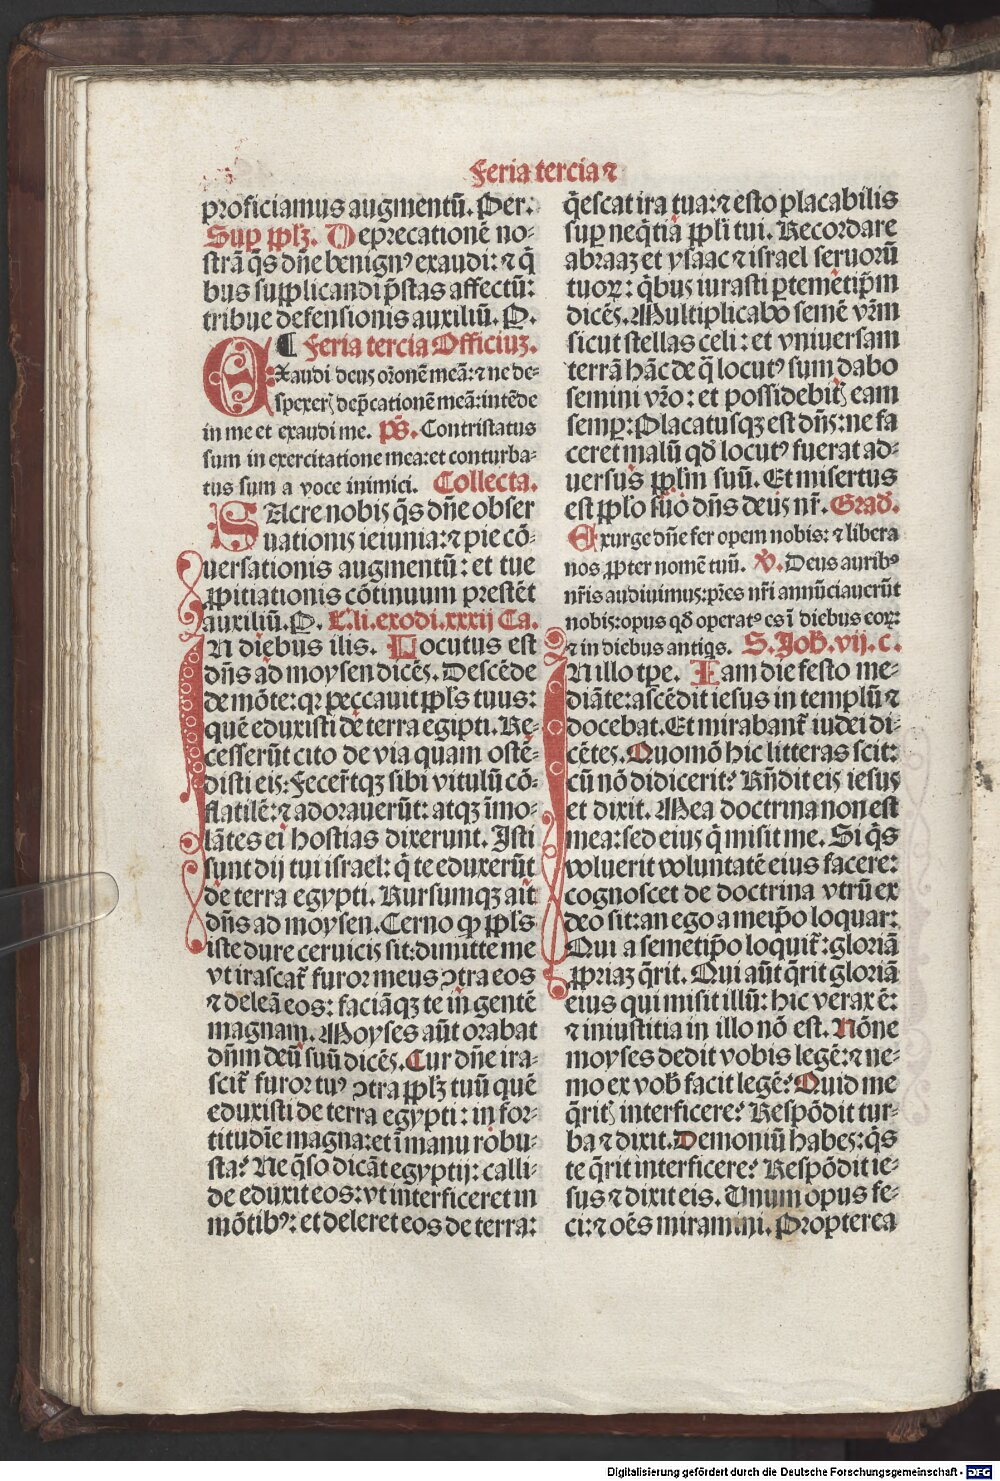 Feria tercia ⁊
proficiamus augmentū. Per:
Sup ppl'ʒ. Deprecationē no-
strā q̄s dn̄e benignꝰ exaudi: ⁊ q̄
bus supplicandi p̄stas affectū:
tribue defensionis auxiliū. P.
¶ Feria tercia Officiuʒ.
Exaudi deus or̄onē meā: ⁊ ne de-
spexeris dep̄cationē meā: intēde
in me et exaudi me. pš. Contristatus
sum in exercitatione mea: et conturba-
tus sum a voce inimici. Collecta.
SAcre nobis q̄s dn̄e obser
uationis ieiunia: ⁊ pie cō-
uersationis augmentū: et tue
ꝓpitiationis cōtinuum prestēt
auxiliū. P. L. li. exodi. xxxij Ca.
IN diebus ilis. Locutus est
dn̄s ad moysen dicēs. Descēde
de mōte: qꝛ peccauit ppl's tuus:
quē eduxisti de terra egipti. Re-
cesserūt cito de via quam ostē-
disti eis: Fecer̄tqʒ sibi vitulū cō-
flatilē: ⁊ adorauerūt: atqʒ īmo-
lātes ei hostias dixerunt. Isti
sunt dij tui israel: q̄ te eduxerūt
de terra egypti. Rursumqʒ ait
dn̄s ad moysen. Cerno ꝙ ppl's
iste dure ceruicis sit: dimitte me
vt irascat᷑ furor meus ꝯtra eos
⁊ deleā eos: faciāqʒ te in gentē
magnam. Moyses aūt orabat
dn̄m deū suū dicēs. Cur dn̄e ira-
scit᷑ furor tuꝰ ꝯtra ppl'ʒ tuū quē
eduxisti de terra egypti: in for-
titudīe magna: et ī manu robu-
sta? Ne q̄so dicāt egyptij: calli-
de eduxit eos: vt interficeret in
mōtibꝰ: et deleret eos de terra:
q̄escat ira tua: ⁊ esto placabilis
sup neq̄tiā ppl'i tui. Recordare
abraaʒ et ysaac ⁊ israel seruorū
tuoꝝ: q̄bus iurasti ꝑ temetip̄m
dicēs. Multiplicabo semē vr̄m
sicut stellas celi: et vniuersam
terrā hāc de q̄ locutꝰ sum dabo
semini vr̄o: et possidebitis eam
semp: Placatusqʒ est dn̄s: ne fa
ceret malū qđ locutꝰ fuerat ad-
uersus ppl'm suū. Et misertus
est ppl'o suo dn̄s deus nr̄. Grad'.
Exurge dn̄e fer opem nobis: ⁊ libera
nos ꝓpter nomē tuū. V̄. Deus auribꝰ
nr̄is audiuimus: pr̄es nr̄i annūciauerūt
nobis: opus qđ operatꝰ es ī diebus eoꝝ:
⁊ in diebus antiq̄s. S. Joh̄. vij. c.
IN illo tp̄e. Iam die festo me-
diāte: ascēdit iesus in templū ⁊
docebat. Et mirabant᷑ iudei di-
cētes. Quomō hic litteras scit:
cū nō didicerit? Rn̄dit eis iesus
et dixit. Mea doctrina non est
mea: sed eius q̄ misit me. Si q̄s
voluerit voluntatē eius facere:
cognoscet de doctrina vtrū ex
deo sit: an ego a meip̄o loquar:
Qui a semetip̄o loquit᷑: gloriā
ꝓpriaʒ q̄rit. Qui aūt q̄rit gloriā
eius qui misit illū: hic verax ē:
⁊ iniustitia in illo nō est. Nōne
moyses dedit vobis legē: ⁊ ne-
mo ex vob̄ facit legē? Quid me
q̄ritis interficere? Respōdit tur-
ba ⁊ dixit. Demoniū habes: q̄s
te q̄rit interficere? Respōdit ie-
sus ⁊ dixit eis. Unum opus fe-
ci: ⁊ oēs miramini. Propterea
Digitalisierung gefördert durch die Deutsche Forschungsgemeinschaft - DFG